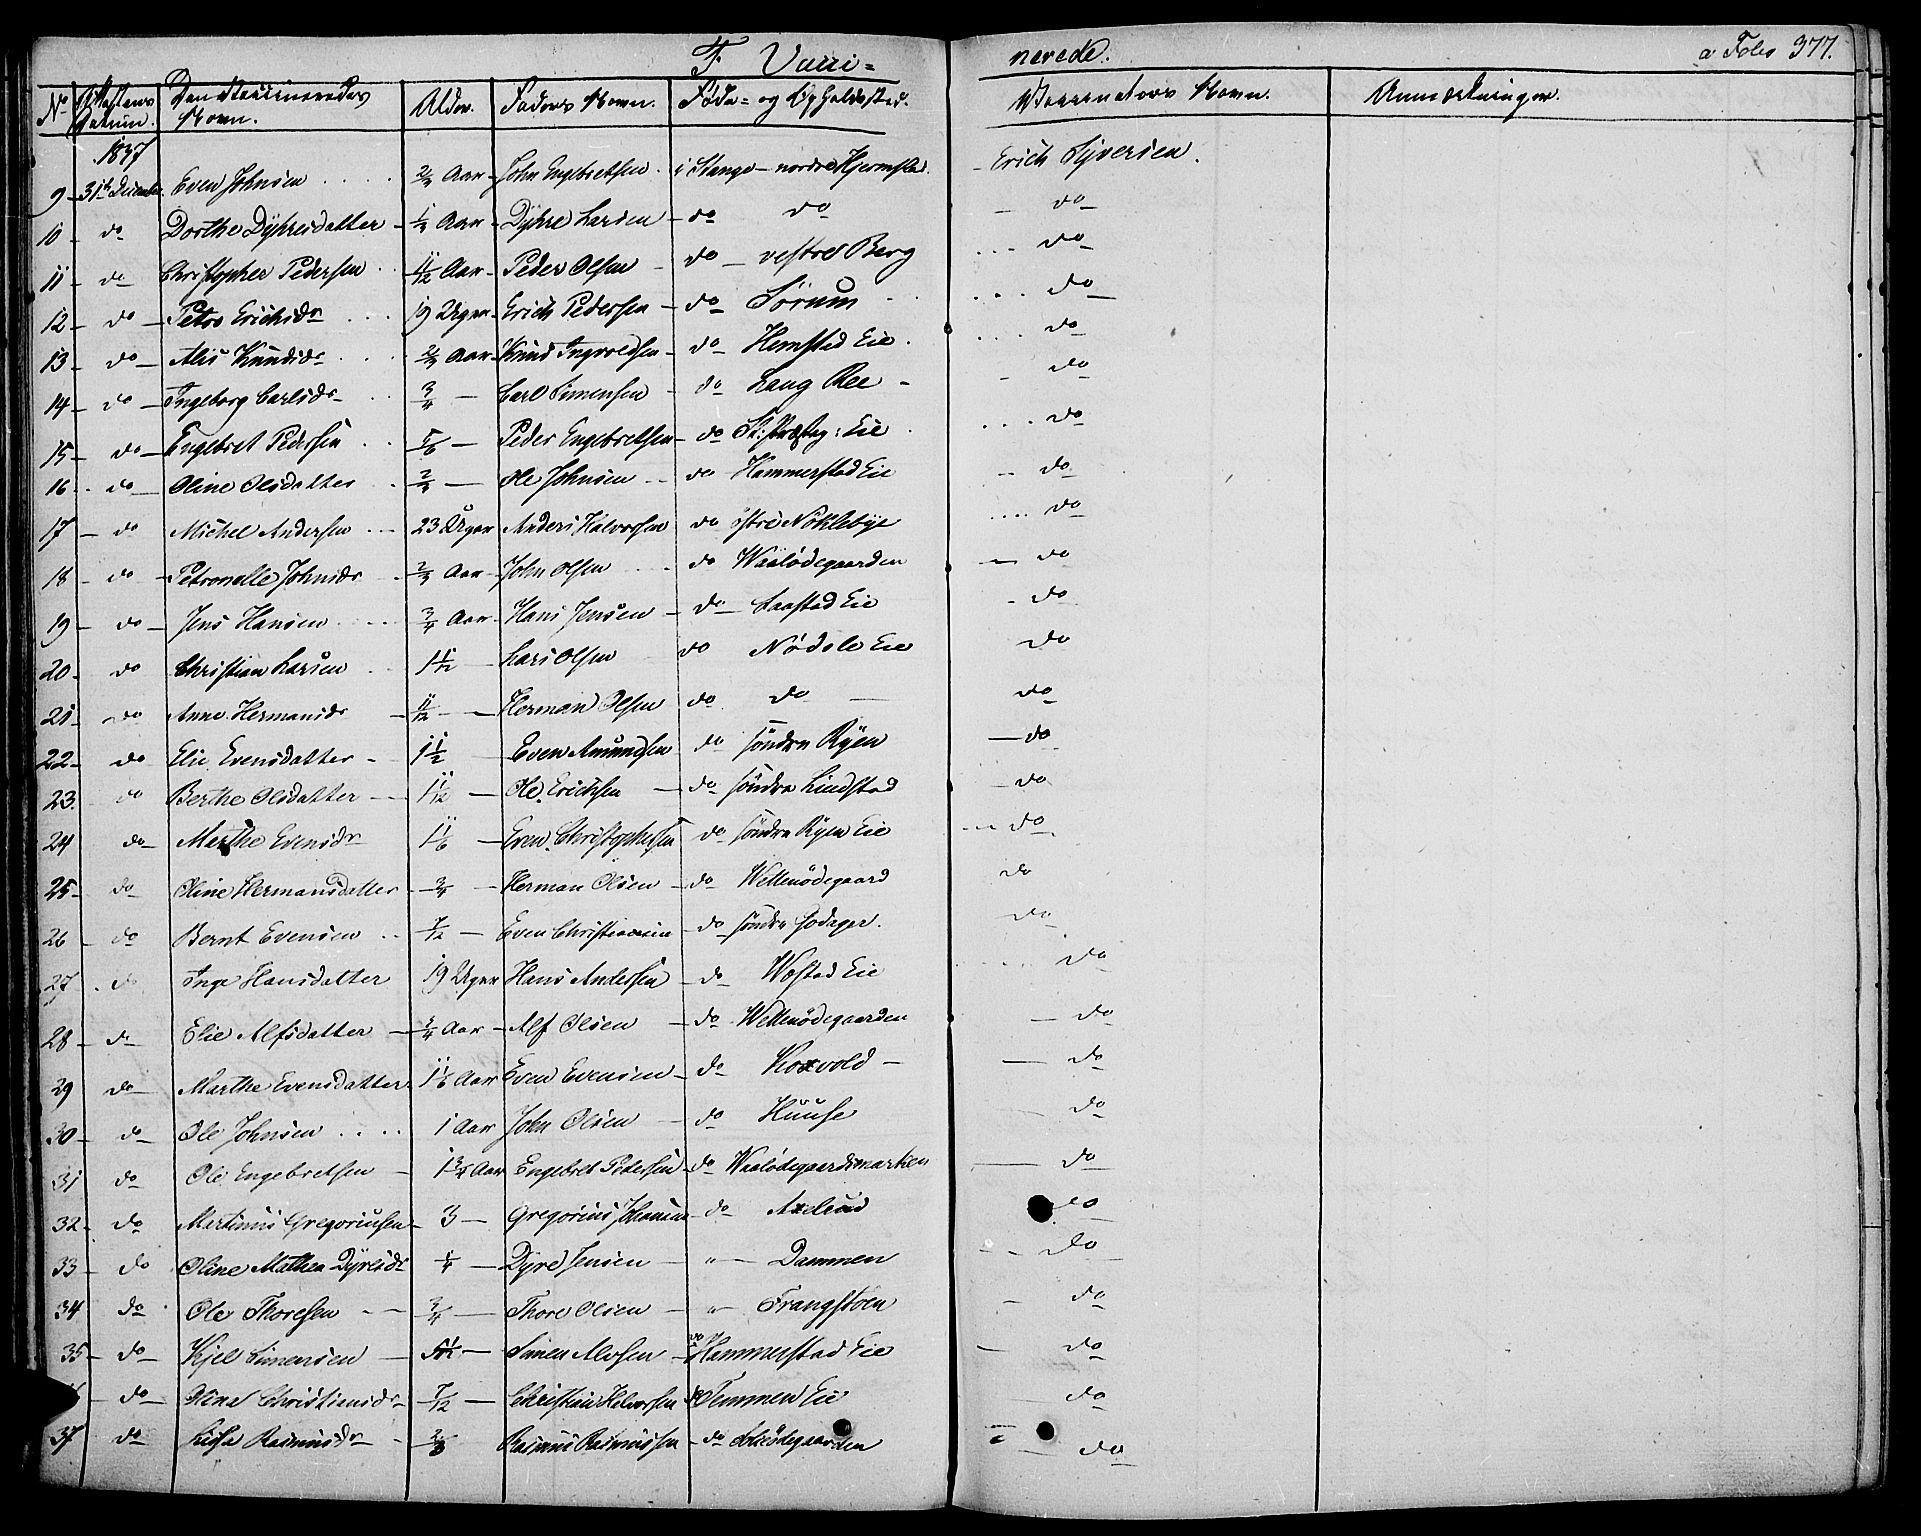 F. Vacci= nerede. a Folio 377.
No Attestens Datum. Den Vaccineredes Navn. Alder. Faders Navn. Føde= og Opholdssted. Vaccinators Navn. Anmærkninger.
1837
9 31te December Even Johnsen 2/3 Aar John Engebretsen i Stange - nordre Hjermstad. Erich Syversen.
10 do Dorthe Dyhresdatter Aar Dyhre Larsen do do do
11 do Christopher Pedersen 11/12 Aar Peder Olsen do vestre Berg do
12 do Petro Erichsdr 19 Uger Erich Pedersen do Sörum do
13 do Alis Knudsdr 2/3 Aar Knud Ingvoldsen do Hemstad Eie do
14 do Ingeborg Carlsdr 3/4 Carl Simensen do Lang Ree do
15 do Engebret Pedersen 5/6 Peder Engebretsen do Eie do
16 do Oline Olsdatter 2/3 Ole Johnsen do Hammerstad Eie do
17 do Michel Andersen 23 Uger Anders Halvorsen do östre Nöklebye do
18 do Petronelle Johnsdr 2/3 Aar John Olsen do Waalödegaarden do
19 do Jens Hansen 3/4 Aar Hans Jensen do Saastad Eie do
20 do Christian Larsen 11/12 Lars Olsen do Nödsle Eie do
21 do Anne Hermansdr 11/12 Herman Olsen do do do
22 do Elie Evensdatter 1 1/2 Even Amundsen do söndre Ryen do
23 do Berthe Olsdatter 1 1/12 Ole Erichsen do söndre Lindstad do
24 do Marthe Evensdr 1 1/6 Even Christophersen do söndre Ryen Eie do
25 do Oline Hermansdatter 3/4 Herman Olsen do Wellenödegaard do
26 do Bernt Evensen 7/12 Even Christiansen do söndre do
27 do Inge Hansdatter 19 Uger Hans Andersen do Wæstad Eie do
28 do Elie Alfsdatter 3/4 Aar Alf Olsen do Wellenödegaarden do
29 do Marthe Evensdatter Aar Even Evensen do Koxvold do
30 do Ole Johnsen 1 Aar John Olsen do Huuse do
31 do Ole Engebretsen 1 3/4 Aar Engebret Pedersen do Waalödegaardsmarken do
32 do Martinus Gregoriusen 3 Gregorius Johansen do Axelrud do
33 do Oline Mathea Dyresdr 1/4 Dyre Jensen " Dammen do
34 do Ole Thoresen 3/4 Thore Olsen " Frangstöen do
35 do Kjel Simensen Simen Alvsen do Hammerstad Eie do
do Olina Christiansdr 7/12 Christian Halvorsen do Temmen Eie do
37 do Lisa Rasmusdr 2/3 Rasmus Rasmussen do do